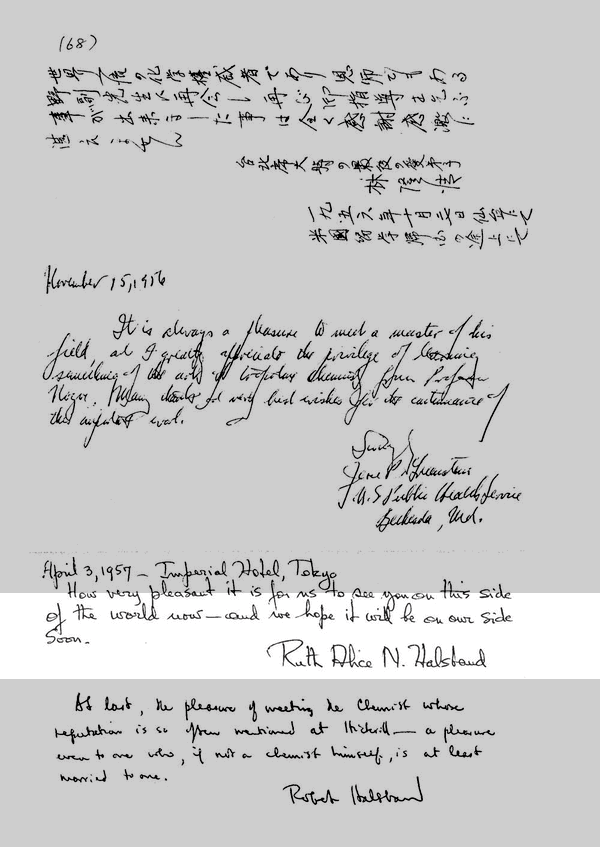 (68)
世界人類の化学権威者であり恩師でもある
野副先生に再会し再び御指導を
事が出来ました事は全く感謝感激に
堪えません
台北帝大時の最後の愛弟子
林 隆 清
一九五六年十月 日仙台にて
米國留学 の途上にて
November 15, 1956
It is always a pleasure to meet a master of his
field, and I greatly appreciate the privilege of learning
something of the art of tropolone chemistry from Professor
Nozoe. Many thanks and very best wishes for the continuance of
this important work.
Sincerely
Jesse P. Greenstein
U.S Public Health Service
Bethesda, Md.
April 3, 1957 — Imperial Hotel, Tokyo
How very pleasant it is for us to see you on this side
of the world now — and we hope it will be on our side
soon.
Ruth Alice N. Halsband
At last, the pleasure of meeting the Chemist whose
reputation is so often mentioned at — a pleasure
even to one who, if not a chemist himself, is at least
married to one.
Robert Halsband